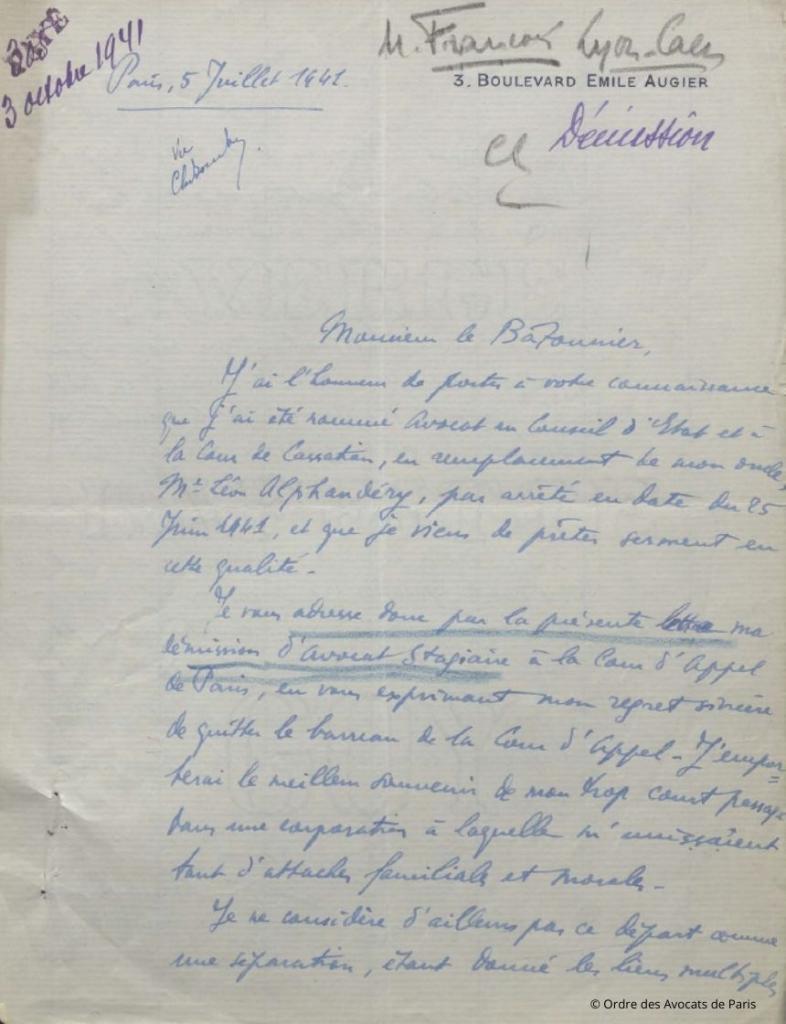 3 octobre 1941
M. François Lyon-Caen
Paris, 5 Juillet 1941.
3. BOULEVARD EMILE AUGIER
Démission
Vu
Monsieur le Bâtonnier,
J'ai l'honneur de porter à votre connaissance
que j'ai été nommé Avocat au Conseil d'Etat et à
la Cour de Cassation, en remplacement de mon oncle,
Me Léon Alphandéry, par arrêté en date du 25
Juin 1941, et que je viens de prêter serment en
cette qualité -
Je vous adresse donc par la présente lettre ma
démission d'Avocat Stagiaire à la Cour d'Appel
de Paris, en vous exprimant mon regret sincère
de quitter le barreau de la Cour d'Appel - J'empor=
terai le meilleur souvenir de mon trop court passage
dans une corporation à laquelle m'unissaient
tant d'attaches familiales et morales -
Je ne considère d'ailleurs pas ce départ comme
une séparation, étant donné les liens multiples
© Ordre des Avocats de Paris